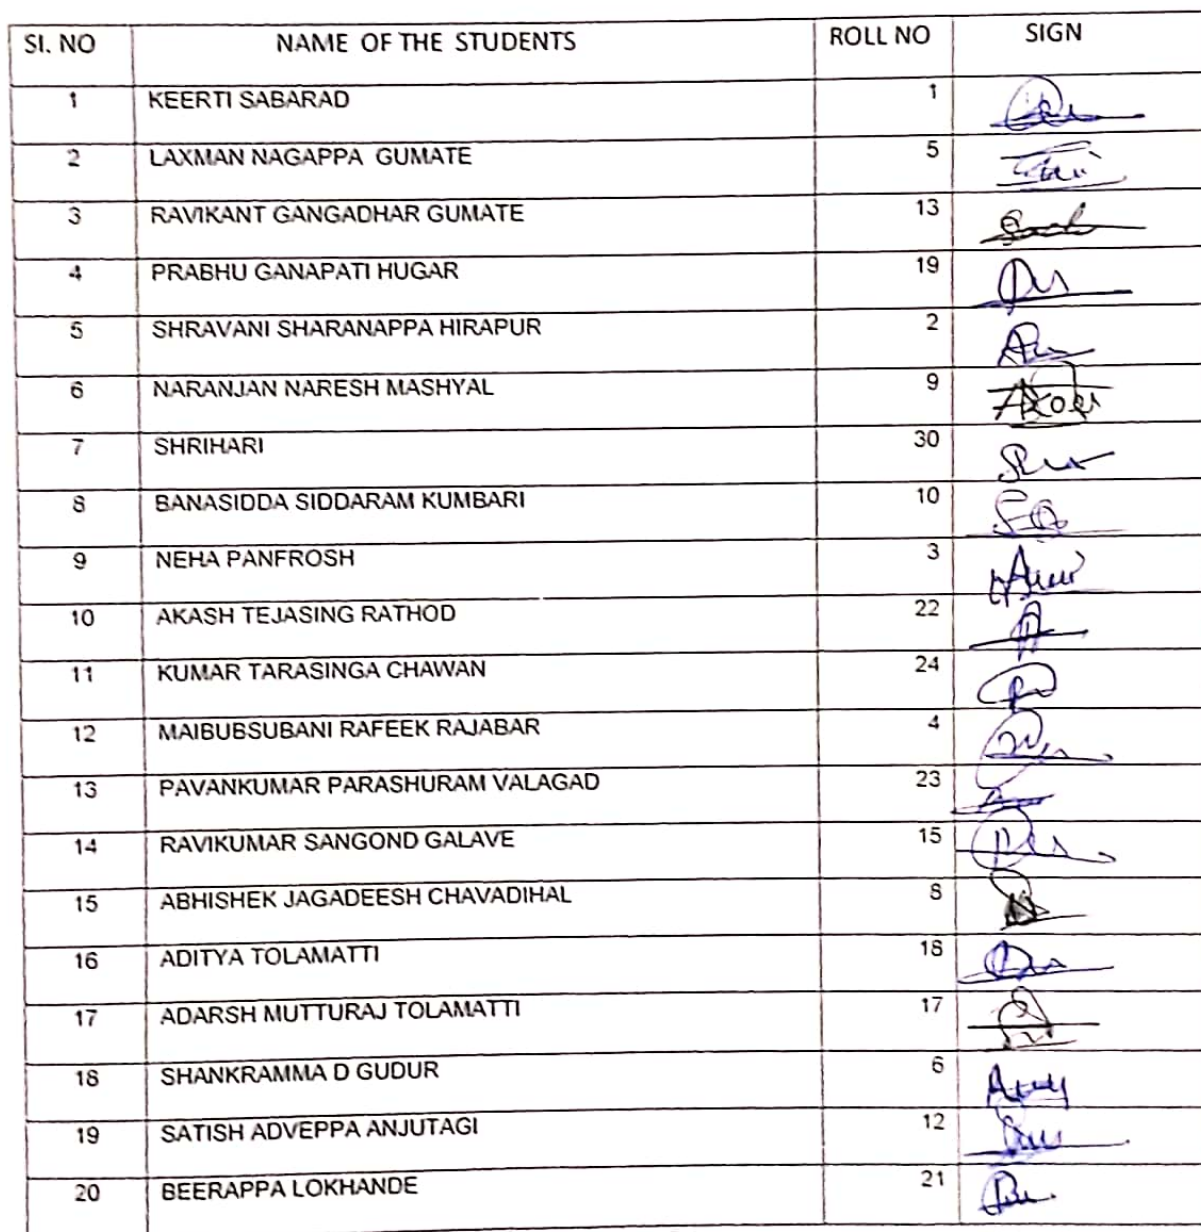 SI. NO NAME OF THE STUDENTS ROLL NO SIGN
1 KEERTI SABARAD 1
2 LAXMAN NAGAPPA GUMATE 5
3 RAVIKANT GANGADHAR GUMATE 13
4 PRABHU GANAPATI HUGAR 19
5 SHRAVANI SHARANAPPA HIRAPUR 2
6 NARANJAN NARESH MASHYAL 9
7 SHRIHARI 30
8 BANASIDDA SIDDARAM KUMBARI 10
9 NEHA PANFROSH 3
10 AKASH TEJASING RATHOD 22
11 KUMAR TARASINGA CHAWAN 24
12 MAIBUBSUBANI RAFEEK RAJABAR 4
13 PAVANKUMAR PARASHURAM VALAGAD 23
14 RAVIKUMAR SANGOND GALAVE 15
15 ABHISHEK JAGADEESH CHAVADIHAL 8
16 ADITYA TOLAMATTI 18
17 ADARSH MUTTURAJ TOLAMATTI 17
18 SHANKRAMMA D GUDUR 6
19 SATISH ADVEPPA ANJUTAGI 12
20 BEERAPPA LOKHANDE 21